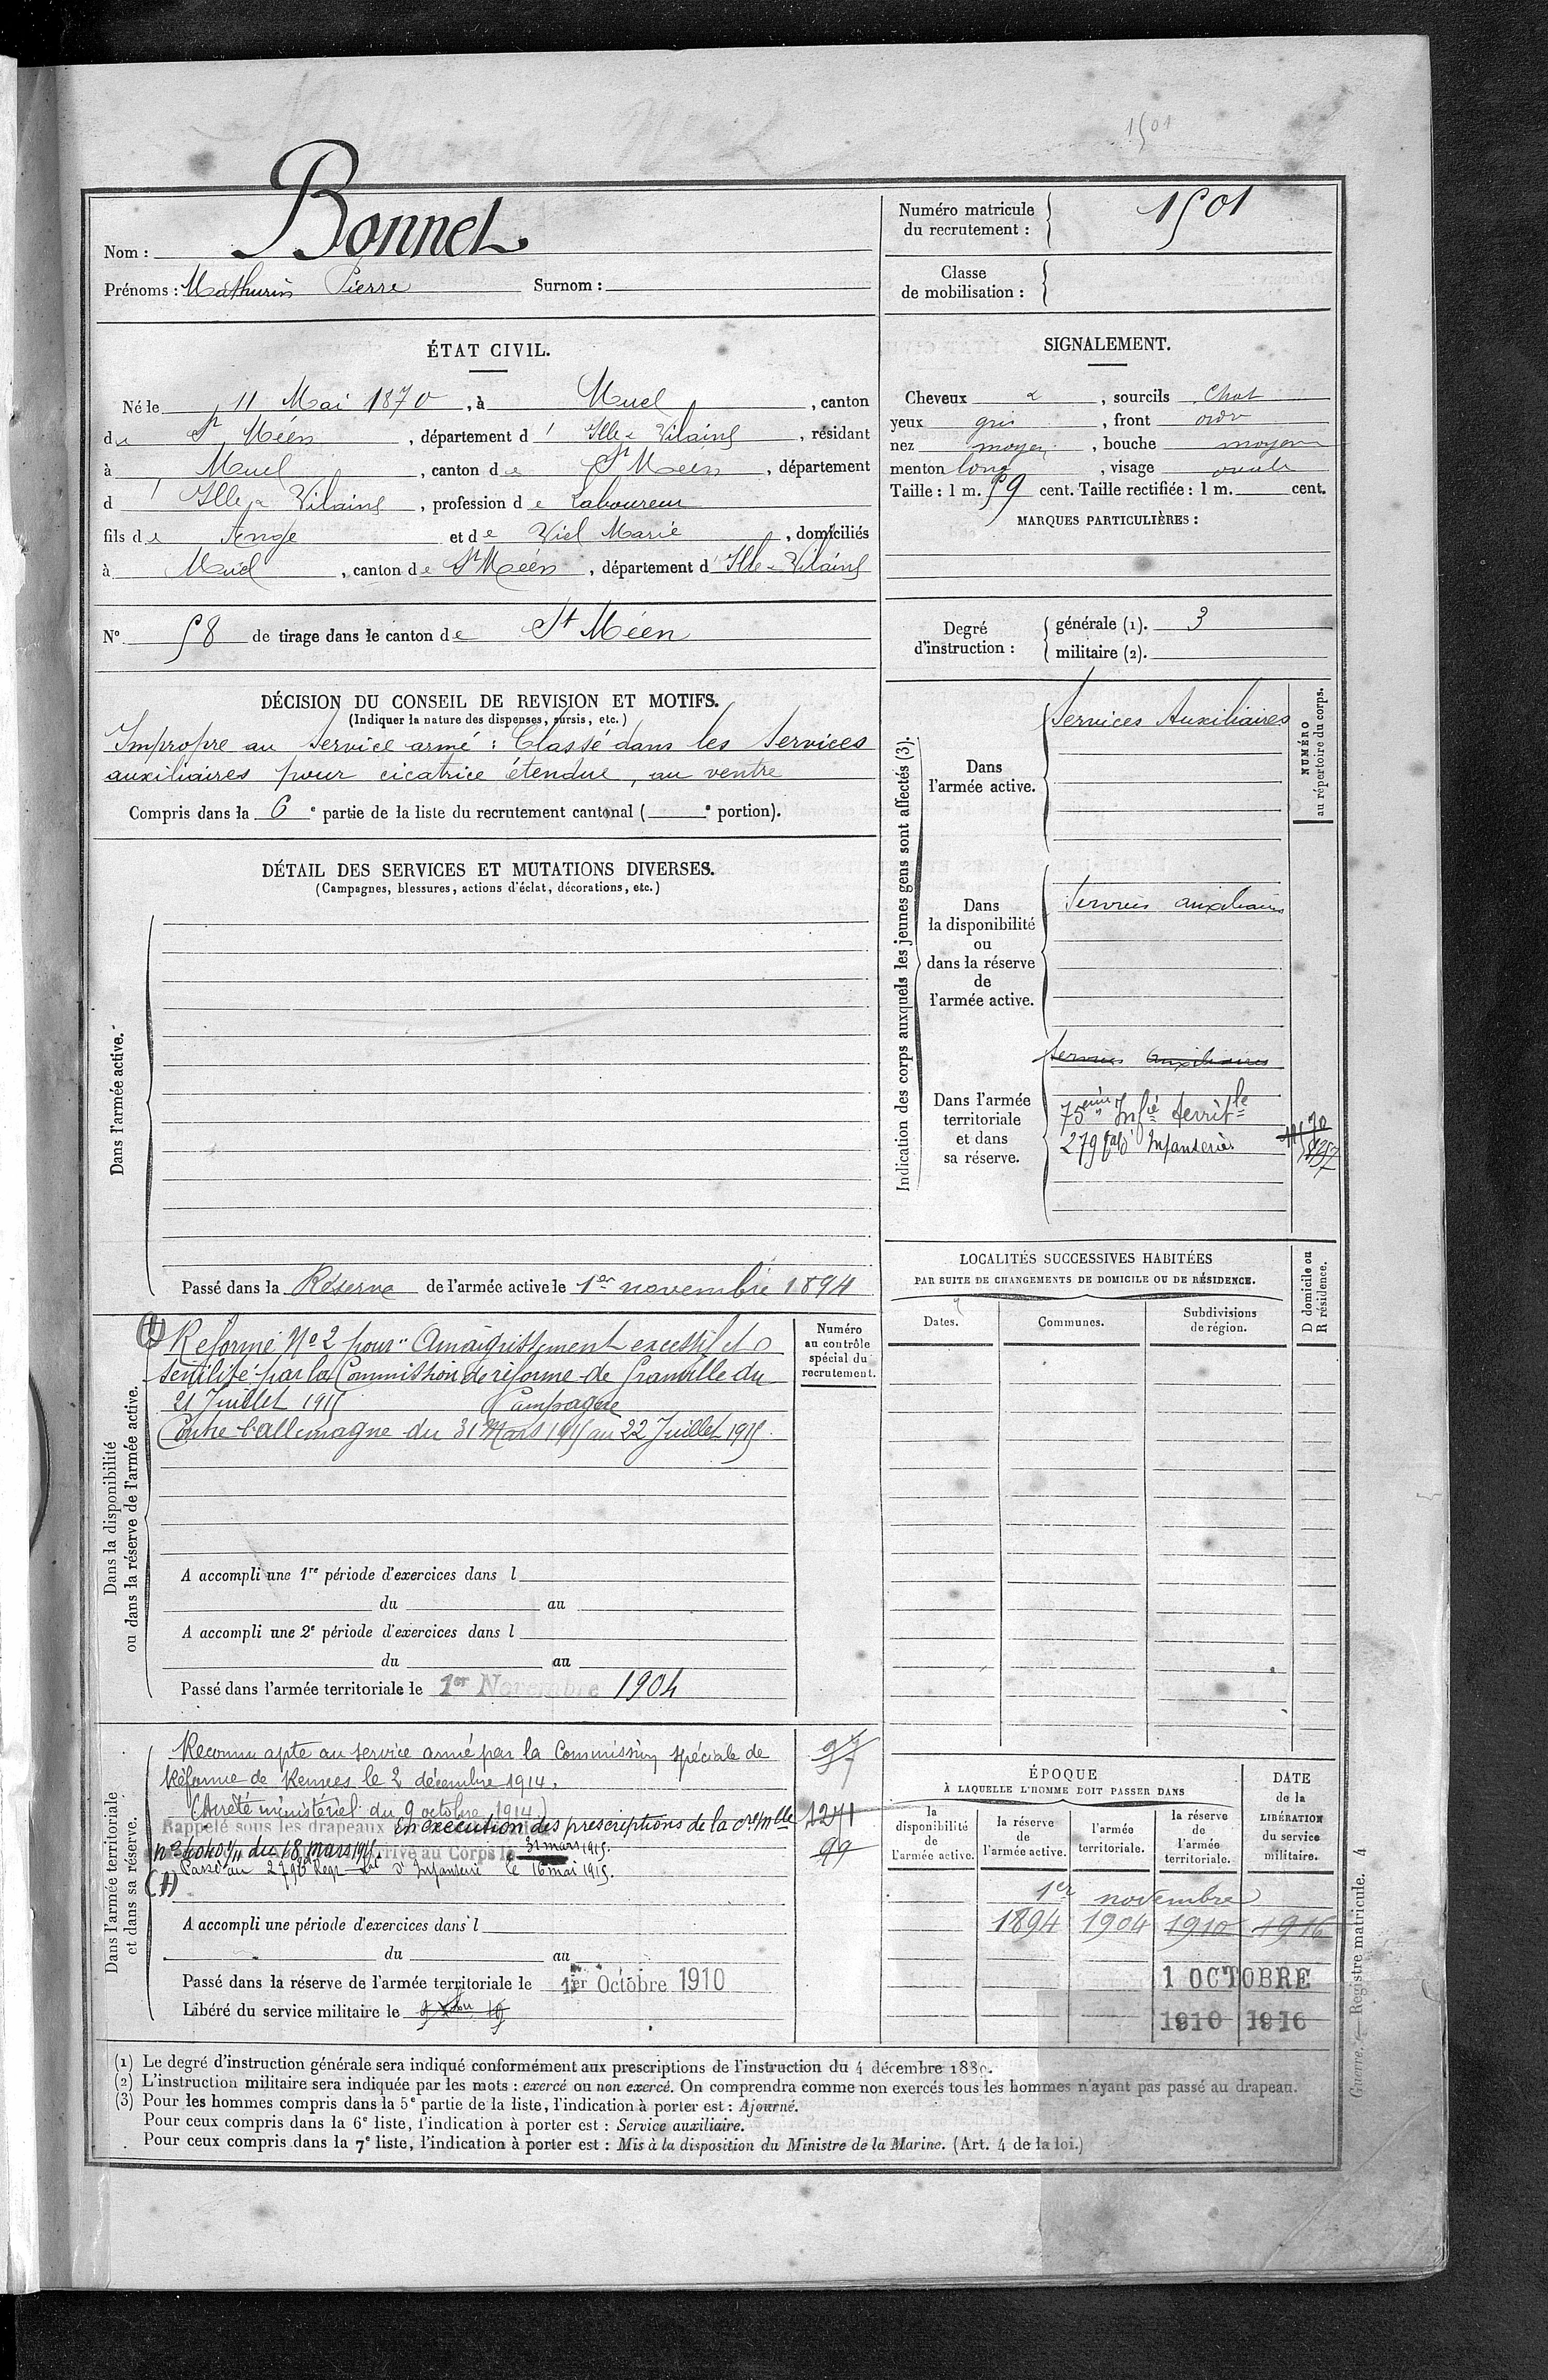 1501
Nom : Bonnet
Prénoms : Mathurin Pierre Surnom :
Numéro matricule du recrutement : 1501
Classe de mobilisation :
ÉTAT CIVIL.
Né le 11 Mai 1870, à Muel, canton
de St Méen, département d' Ille & Vilaine, résidant
à Muel, canton de St Méen, département
d' Ille & Vilaine, profession de Laboureur
fils de Ange et de Viel Marie, domiciliés
à Muel, canton de St Méen, département d' Ille & Vilaine
N° 58 de tirage dans le canton de St Méen
SIGNALEMENT.
Cheveux &, sourcils Chat
yeux gris, front ordre
nez moyen, bouche moyenne
menton long, visage ovale
Taille : 1 m. 59 cent. Taille rectifiée : 1 m. cent.
MARQUES PARTICULIÈRES :
Degré d'instruction :
générale (1). 3
militaire (2).
DÉCISION DU CONSEIL DE REVISION ET MOTIFS.
(Indiquer la nature des dispenses, sursis, etc.)
Impropre au service armé : Classé dans les services
auxiliaires pour cicatrice étendue, au ventre
Compris dans la 6e partie de la liste du recrutement cantonal ( e portion).
DÉTAIL DES SERVICES ET MUTATIONS DIVERSES.
(Campagnes, blessures, actions d'éclat, décorations, etc.)
Dans l'armée active.
Passé dans la Réserve de l'armée active le 1er novembre 1894
Dans la disponibilité
ou dans la réserve de l'armée active.
Numéro
au contrôle
spécial du
recrutement.
Réformé N° 2 pour "Amaigrissement excessif et
sénilité par la Commission de réforme de Granville du
21 Juillet 1915 Campagne
Contre l'Allemagne du 31 Mars 1915 au 22 Juillet 1915.
A accompli une 1re période d'exercices dans l
du au
A accompli une 2e période d'exercices dans l
du au
Passé dans l'armée territoriale le 1er Novembre 1904
Dans l'armée territoriale
et dans sa réserve.
Reconnu apte au service armé par la Commission spéciale de
Réforme de Rennes le 2 décembre 1914.
(Arrêté ministériel du 9 octobre 1914)
Rappelé sous les drapeaux en exécution des prescriptions de la cre mlle
du 18 mars 1915. Arrivé au Corps le 31 mars 1915.
Passé au 279e Regt tal d'Infanterie le 16 mai 1915.
1241
99
A accompli une période d'exercices dans l
du au
Passé dans la réserve de l'armée territoriale le 1er Octobre 1910
Libéré du service militaire le
Indication des corps auxquels les jeunes gens sont affectés (3).
NUMÉRO
au répertoire du corps.
Dans
l'armée active.
Services Auxiliaires
Dans
la disponibilité
ou
dans la réserve
de
l'armée active.
Services auxiliaires
Dans l'armée
territoriale
et dans
sa réserve.
Services Auxiliaires
75eme Infie territle
279 tal d' Infanterie
LOCALITÉS SUCCESSIVES HABITÉES
PAR SUITE DE CHANGEMENTS DE DOMICILE OU DE RÉSIDENCE.
D domicile ou
R résidence.
Dates. Communes. Subdivisions
de région.
ÉPOQUE
À LAQUELLE L'HOMME DOIT PASSER DANS
DATE
de la
LIBÉRATION
du service
militaire.
la
disponibilité
de
l'armée active.
la réserve
de
l'armée active.
l'armée
territoriale.
la réserve
de
l'armée
territoriale.
1er novembre
1894 1904 1910 1916
1 OCTOBRE
1910 1916
(1) Le degré d'instruction générale sera indiqué conformément aux prescriptions de l'instruction du 4 décembre 1889.
(2) L'instruction militaire sera indiquée par les mots : exercé ou non exercé. On comprendra comme non exercés tous les hommes n'ayant pas passé au drapeau.
(3) Pour les hommes compris dans la 5e partie de la liste, l'indication à porter est : Ajourné.
Pour ceux compris dans la 6e liste, l'indication à porter est : Service auxiliaire.
Pour ceux compris dans la 7e liste, l'indication à porter est : Mis à la disposition du Ministre de la Marine. (Art. 4 de la loi.)
Guerre. — Registre matricule. 4